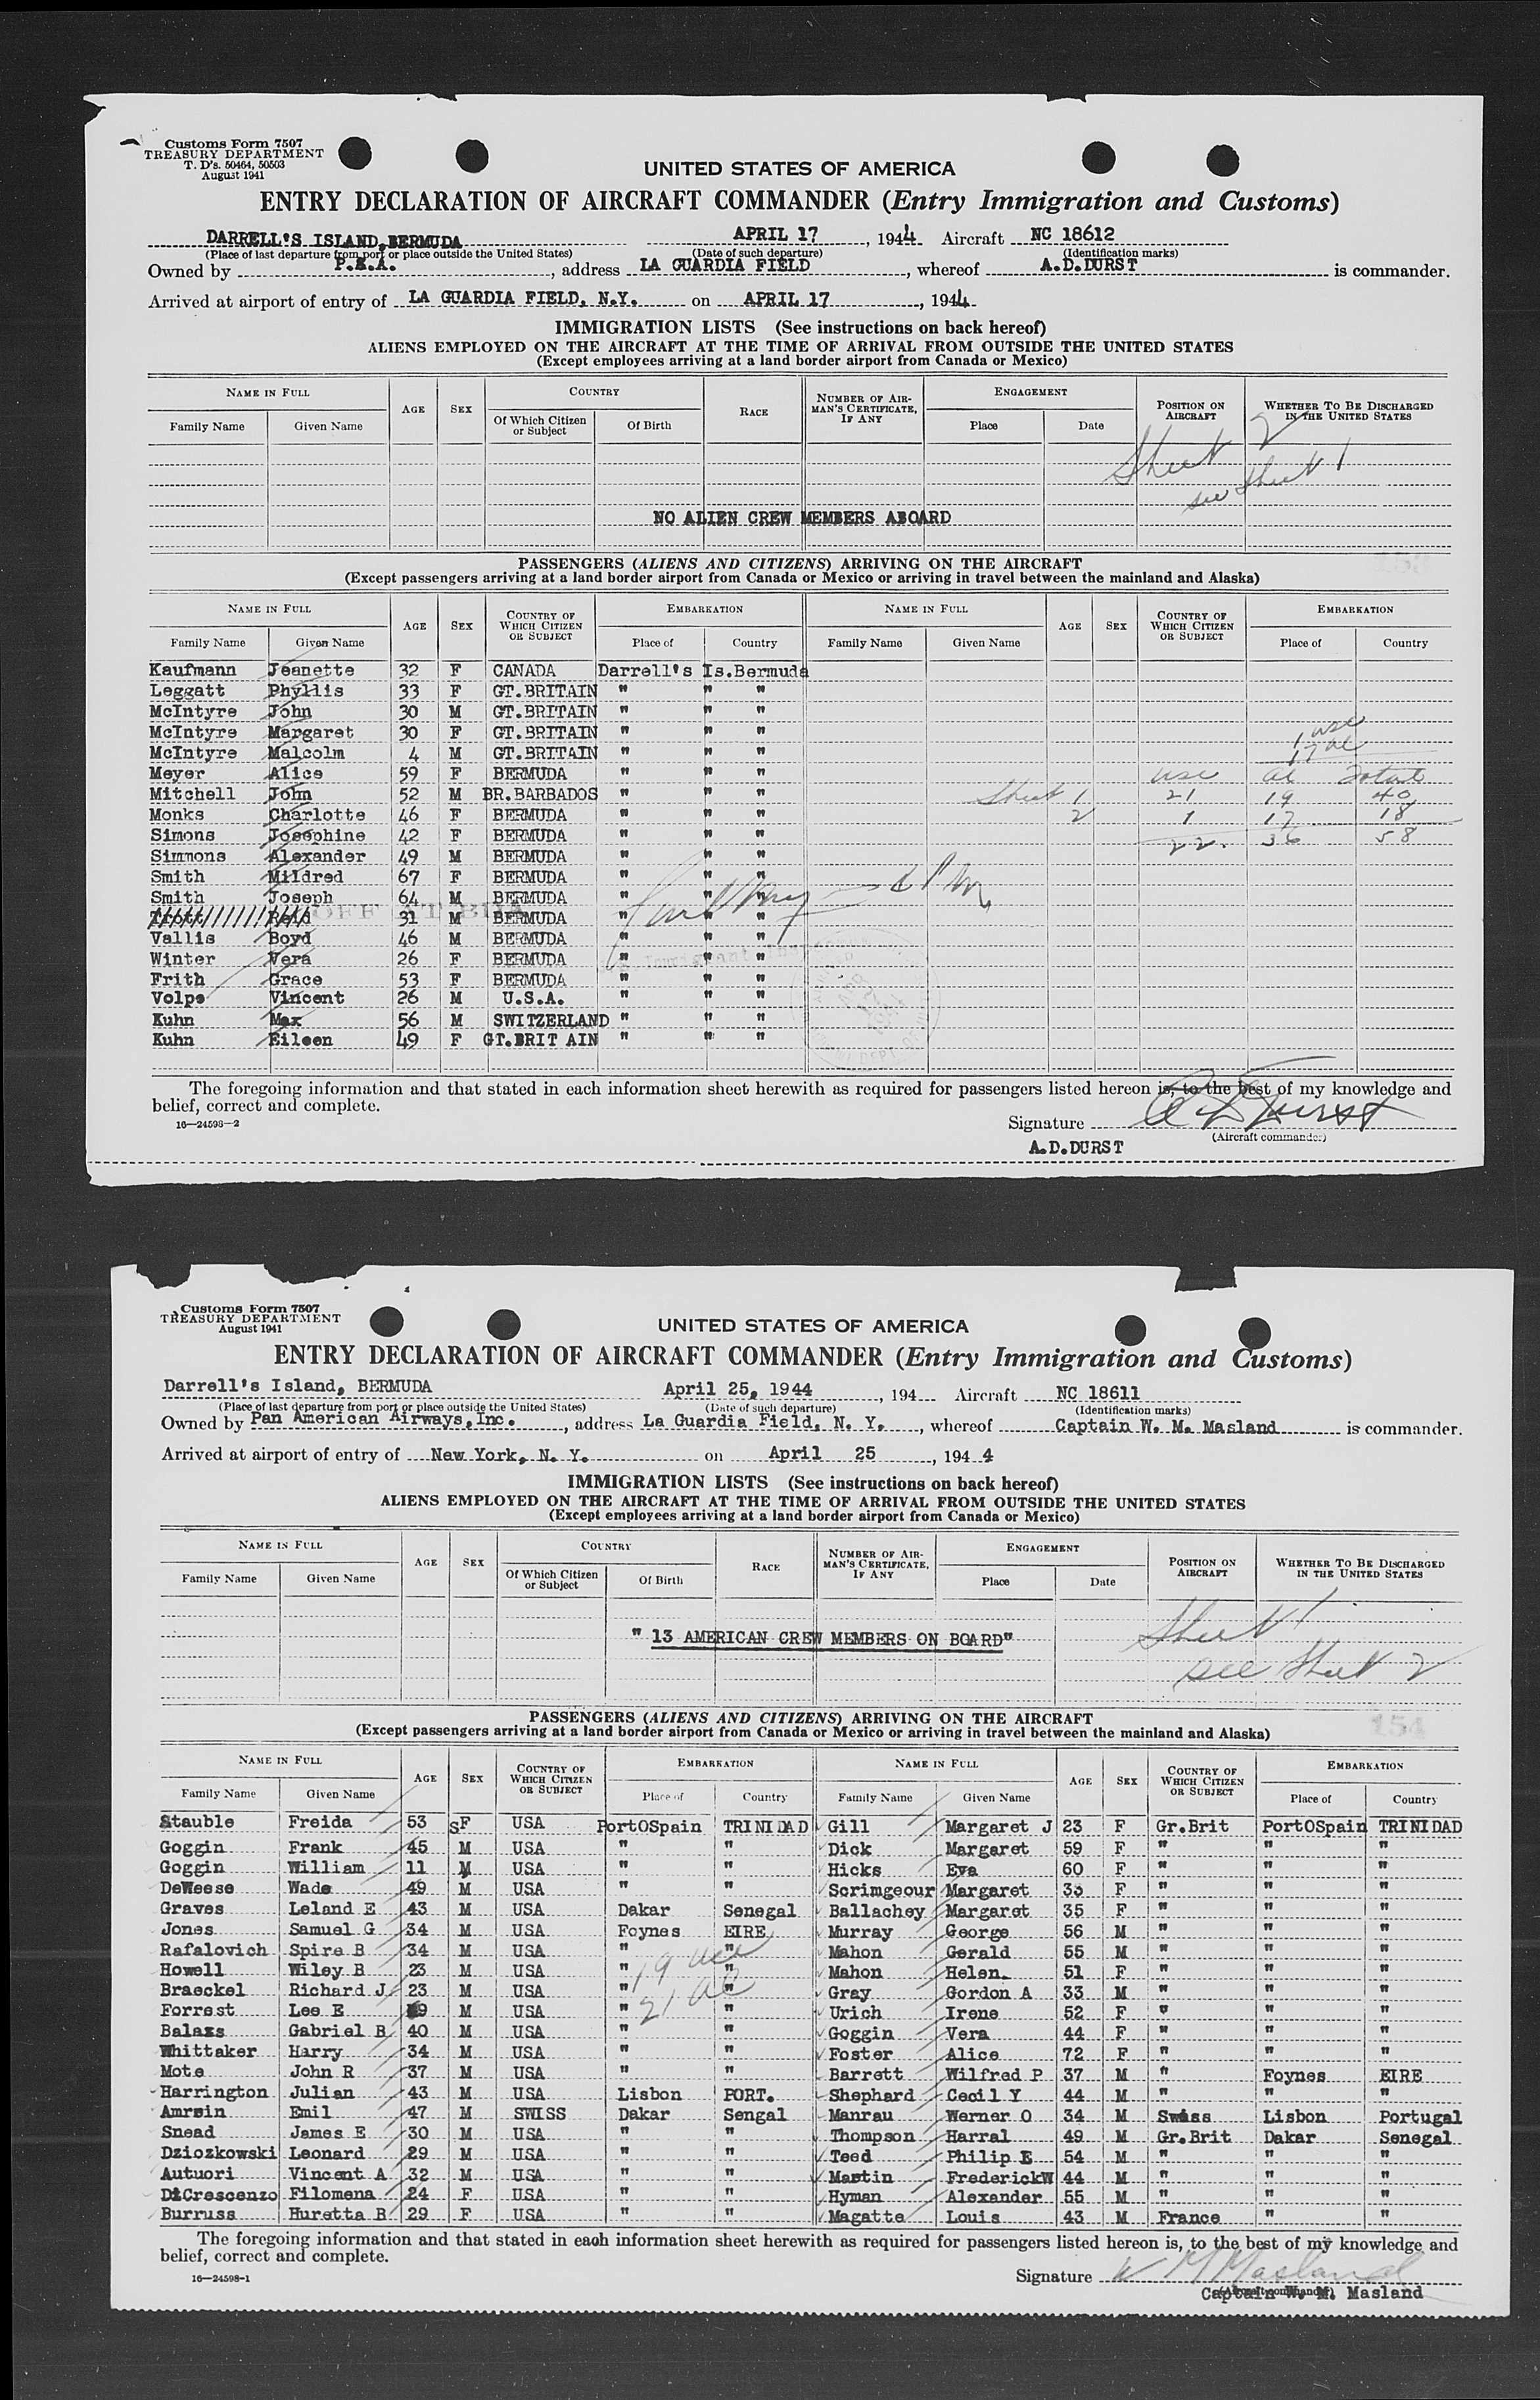 Customs Form 7507
TREASURY DEPARTMENT
T. D's. 50464, 50503
August 1941
UNITED STATES OF AMERICA
ENTRY DECLARATION OF AIRCRAFT COMMANDER (Entry Immigration and Customs)
DARRELL'S ISLAND, BERMUDA APRIL 17, 1944 Aircraft NC 18612
(Place of last departure from port or place outside the United States) (Date of such departure) (Identification marks)
Owned by P.E.A., address LA GUARDIA FIELD, whereof A.D.DURST is commander.
Arrived at airport of entry of LA GUARDIA FIELD, N.Y. on APRIL 17, 1944
IMMIGRATION LISTS (See instructions on back hereof)
ALIENS EMPLOYED ON THE AIRCRAFT AT THE TIME OF ARRIVAL FROM OUTSIDE THE UNITED STATES
(Except employees arriving at a land border airport from Canada or Mexico)
NAME IN FULL AGE SEX COUNTRY RACE NUMBER OF AIRMAN'S CERTIFICATE, IF ANY ENGAGEMENT POSITION ON AIRCRAFT WHETHER TO BE DISCHARGED IN THE UNITED STATES
Family Name Given Name Of Which Citizen or Subject Of Birth Place Date
Sheet 2
see Sheet 1
NO ALIEN CREW MEMBERS ABOARD
PASSENGERS (ALIENS AND CITIZENS) ARRIVING ON THE AIRCRAFT
(Except passengers arriving at a land border airport from Canada or Mexico or arriving in travel between the mainland and Alaska)
NAME IN FULL AGE SEX COUNTRY OF WHICH CITIZEN OR SUBJECT EMBARKATION NAME IN FULL AGE SEX COUNTRY OF WHICH CITIZEN OR SUBJECT EMBARKATION
Family Name Given Name Place of Country Family Name Given Name Place of Country
Kaufmann Jeanette 32 F CANADA Darrell's Is.Bermuda
Leggatt Phyllis 33 F GT.BRITAIN " " "
McIntyre John 30 M GT.BRITAIN " " "
McIntyre Margaret 30 F GT.BRITAIN " " " 1 usc
McIntyre Malcolm 4 M GT.BRITAIN " " " 17 al
Meyer Alice 59 F BERMUDA " " " usc al Total
Mitchell John 52 M BR.BARBADOS " " " Sheet 1 21 19 40
Monks Charlotte 46 F BERMUDA " " " 2 1 17 18
Simons Josephine 42 F BERMUDA " " " 22. 36 58
Simmons Alexander 49 M BERMUDA " " "
Smith Mildred 67 F BERMUDA " " "
Smith Joseph 64 M BERMUDA " " "
Trott Reid 31 M BERMUDA " " "
Vallis Boyd 46 M BERMUDA " " "
Winter Vera 26 F BERMUDA " " "
Frith Grace 53 F BERMUDA " " "
Volpe Vincent 26 M U.S.A. " " "
Kuhn Max 56 M SWITZERLAND " " "
Kuhn Eileen 49 F GT.BRIT AIN " " "
The foregoing information and that stated in each information sheet herewith as required for passengers listed hereon is, to the best of my knowledge and
belief, correct and complete.
16—24598-2
Signature A D Durst
(Aircraft commander)
A.D.DURST
Customs Form 7507
TREASURY DEPARTMENT
August 1941
UNITED STATES OF AMERICA
ENTRY DECLARATION OF AIRCRAFT COMMANDER (Entry Immigration and Customs)
Darrell's Island, BERMUDA April 25, 1944, 194 Aircraft NC 18611
(Place of last departure from port or place outside the United States) (Date of such departure) (Identification marks)
Owned by Pan American Airways,Inc., address La Guardia Field, N. Y., whereof Captain W. M. Masland is commander.
Arrived at airport of entry of New York, N. Y. on April 25, 1944
IMMIGRATION LISTS (See instructions on back hereof)
ALIENS EMPLOYED ON THE AIRCRAFT AT THE TIME OF ARRIVAL FROM OUTSIDE THE UNITED STATES
(Except employees arriving at a land border airport from Canada or Mexico)
NAME IN FULL AGE SEX COUNTRY RACE NUMBER OF AIRMAN'S CERTIFICATE, IF ANY ENGAGEMENT POSITION ON AIRCRAFT WHETHER TO BE DISCHARGED IN THE UNITED STATES
Family Name Given Name Of Which Citizen or Subject Of Birth Place Date
Sheet 1
" 13 AMERICAN CREW MEMBERS ON BOARD"
see Sheet 2
PASSENGERS (ALIENS AND CITIZENS) ARRIVING ON THE AIRCRAFT
(Except passengers arriving at a land border airport from Canada or Mexico or arriving in travel between the mainland and Alaska)
154
NAME IN FULL AGE SEX COUNTRY OF WHICH CITIZEN OR SUBJECT EMBARKATION NAME IN FULL AGE SEX COUNTRY OF WHICH CITIZEN OR SUBJECT EMBARKATION
Family Name Given Name Place of Country Family Name Given Name Place of Country
Stauble Freida 53 SF USA PortOSpain TRINIDAD Gill Margaret J 23 F Gr.Brit PortOSpain TRINIDAD
Goggin Frank 45 M USA " " Dick Margaret 59 F " " "
Goggin William 11 M USA " " Hicks Eva 60 F " " "
DeWeese Wade 49 M USA " " Scrimgeour Margaret 33 F " " "
Graves Leland E 43 M USA Dakar Senegal Ballachey Margaret 35 F " " "
Jones Samuel G 34 M USA Foynes EIRE Murray George 56 M " " "
Rafalovich Spire B 34 M USA " " Mahon Gerald 55 M " " "
19 usc
Howell Wiley B 23 M USA " " Mahon Helen 51 F " " "
21 al
Braeckel Richard J 23 M USA " " Gray Gordon A 33 M " " "
Forrest Lee E USA " " Urich Irene 52 F " " "
Balass Gabriel B 40 M USA " " Goggin Vera 44 F " " "
Whittaker Harry 34 M USA " " Foster Alice 72 F " " "
Mote John R 37 M USA " " Barrett Wilfred P 37 M " Foynes EIRE
Harrington Julian 43 M USA Lisbon PORT. Shephard Cecil Y 44 M " " "
Amrein Emil 47 M SWISS Dakar Sengal Manrau Werner O 34 M Swiss Lisbon Portugal
Snead James E 30 M USA " " Thompson Harral 49 M Gr.Brit Dakar Senegal
Dziozkowski Leonard 29 M USA " " Teed Philip E 54 M " " "
Autuori Vincent A 32 M USA " " Martin FrederickW 44 M " " "
DiCrescenzo Filomena 24 F USA " " Hyman Alexander 55 M " " "
Burruss Huretta B 29 F USA " " Magatte Louis 43 M France " "
The foregoing information and that stated in each information sheet herewith as required for passengers listed hereon is, to the best of my knowledge and
belief, correct and complete.
16—24598-1
Signature W M Masland
(Aircraft commander)
Captain W. M. Masland